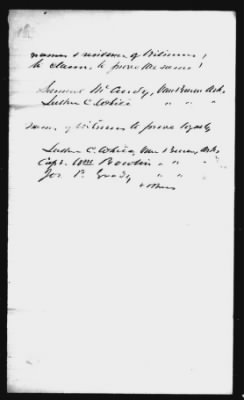 names & residence of Witnesses,
to claim, to prove the same!
Samuel McCurdy, Van Buren Ark.
Luther C. White " " "
names of Witnesses to prove loyalty
Luther C. White, Van Buren, Ark.
Capt. Wm Bowlin " " "
Jos. P. Grady " "
& others